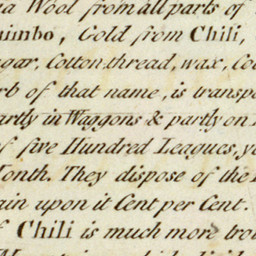 ia Wool from all parts of
uimbo, Gold from Chili,
gar, Cotton thread, wax, Co
rb of that name, is transpo
artly in Waggons & partly on
of five Hundred Leagues, ye
Month. They dispose of the
ain upon it Cent per Cent.
f Chili is much more trou